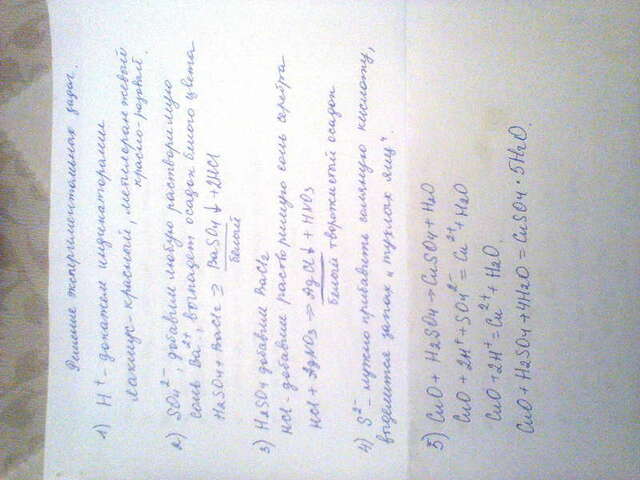 Решение экспериментальных задач.
1) H⁺ - докажем индикаторами
лакмус - красный, метилоранжевый
красно-розовый.
2) SO₄²⁻, добавим любую растворимую
соль Ba²⁺, выпадет осадок белого цвета
H₂SO₄ + BaCl₂ = BaSO₄↓ + 2HCl
белый
3) H₂SO₄ добавим BaCl₂
HCl - добавим растворимую соль серебра
HCl + AgNO₃ → AgCl↓ + HNO₃
белый творожистый осадок
4) S²⁻ - нужно прибавить сильную кислоту,
выделяется запах „тухлых яиц".
5) CuO + H₂SO₄ → CuSO₄ + H₂O
CuO + 2H⁺ + SO₄²⁻ = Cu²⁺ + H₂O
CuO + 2H⁺ = Cu²⁺ + H₂O
CuO + H₂SO₄ + 4H₂O = CuSO₄ · 5H₂O.